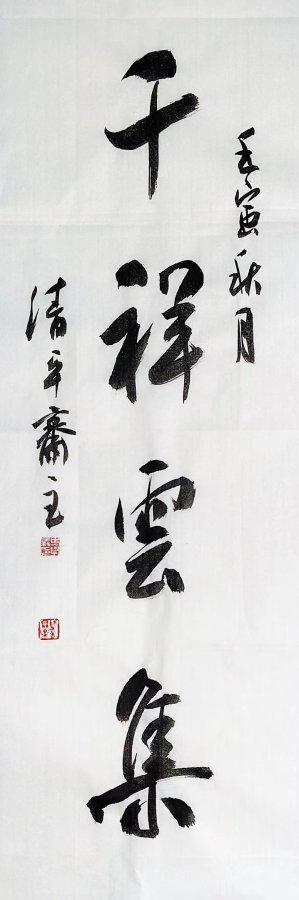 壬寅秋月
千祥雲集
清平齋主